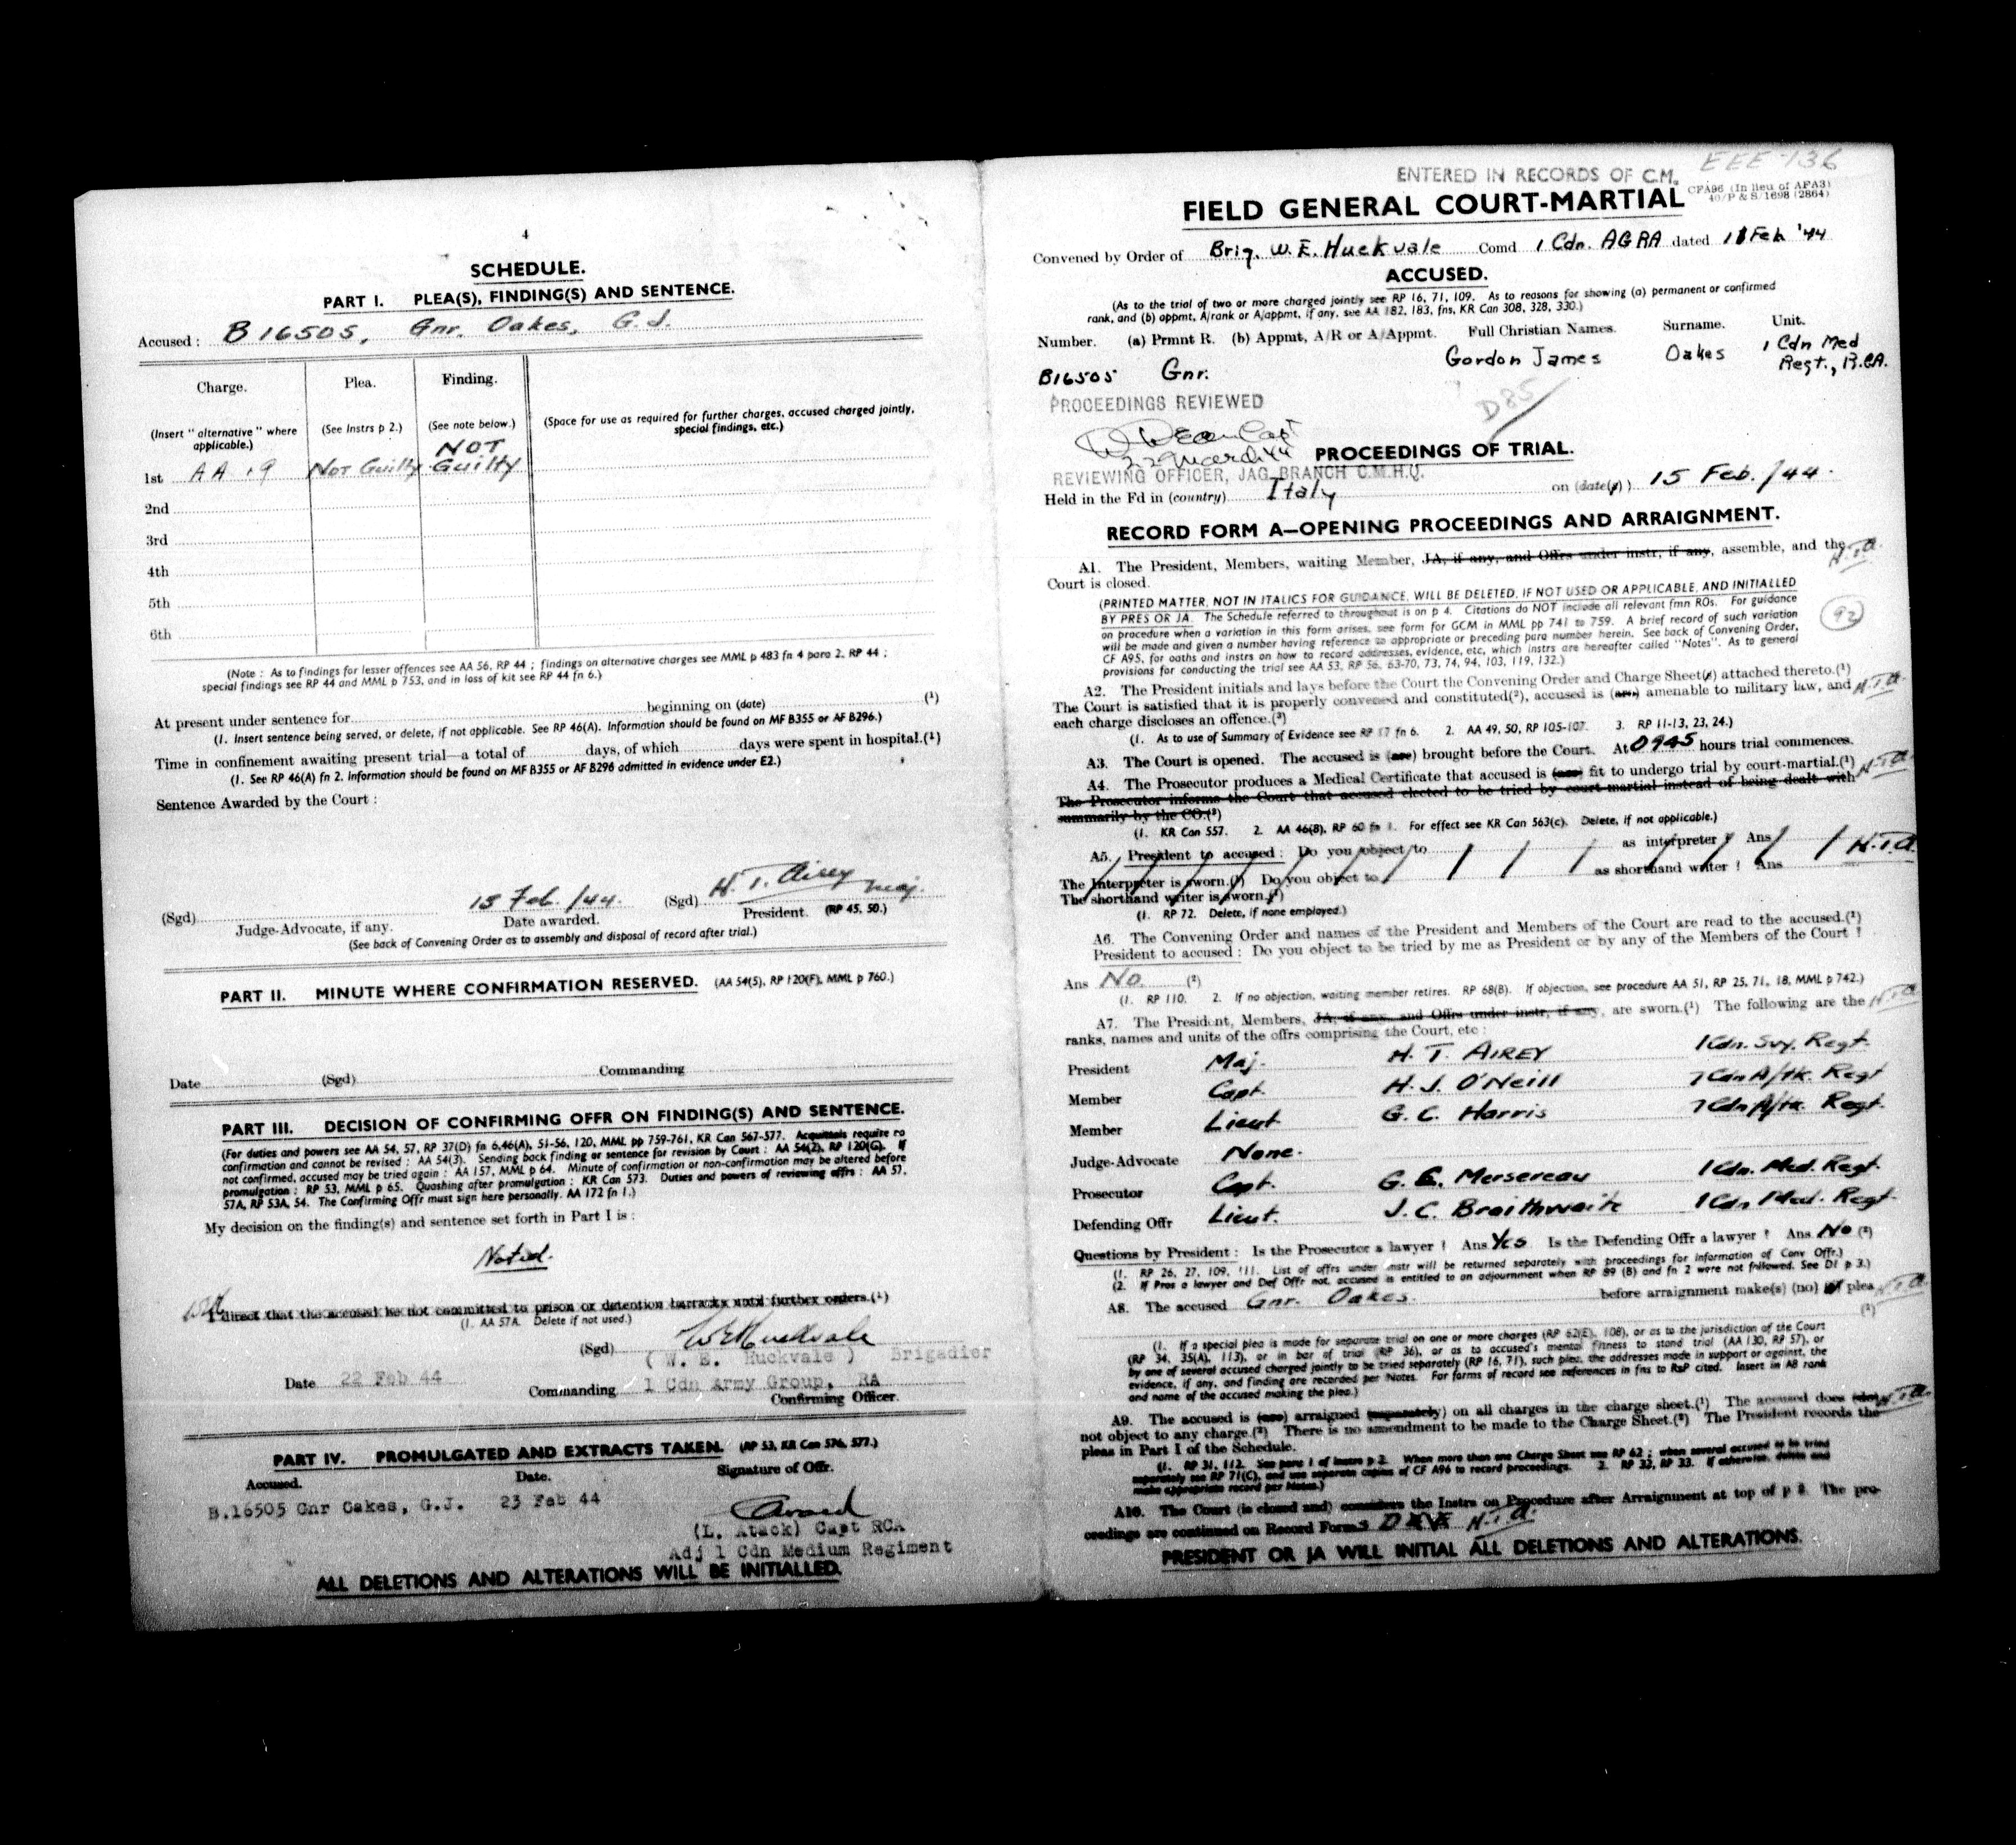 4
SCHEDULE.
PART I. PLEA(S), FINDING(S) AND SENTENCE.
Accused : B 16505, Gnr. Oakes, G.J.
Charge. Plea. Finding.
(Insert "alternative" where applicable.) (See Instrs p 2.) (See note below.) (Space for use as required for further charges, accused charged jointly, special findings, etc.)
NOT
1st AA 19 Not Guilty Guilty
2nd
3rd
4th
5th
6th
(Note : As to findings for lesser offences see AA 56, RP 44 ; findings on alternative charges see MML p 483 fn 4 para 2, RP 44 ;
special findings see RP 44 and MML p 753, and in loss of kit see RP 44 fn 6.)
At present under sentence for beginning on (date) (¹)
(1. Insert sentence being served, or delete, if not applicable. See RP 46(A). Information should be found on MF B355 or AF B296.)
Time in confinement awaiting present trial—a total of days, of which days were spent in hospital.(¹)
(1. See RP 46(A) fn 2. Information should be found on MF B355 or AF B296 admitted in evidence under E2.)
Sentence Awarded by the Court :
(Sgd) 15 Feb./44. (Sgd) H. T. Airey Maj.
Judge-Advocate, if any. Date awarded. President. (RP 45, 50.)
(See back of Convening Order as to assembly and disposal of record after trial.)
PART II. MINUTE WHERE CONFIRMATION RESERVED. (AA 54(5), RP 120(F), MML p 760.)
Date (Sgd) Commanding
PART III. DECISION OF CONFIRMING OFFR ON FINDING(S) AND SENTENCE.
(For duties and powers see AA 54, 57, RP 37(D) fn 6,46(A), 51-56, 120, MML pp 759-761, KR Can 567-577. Acquittals require no
confirmation and cannot be revised : AA 54(3). Sending back finding or sentence for revision by Court : AA 54(2), RP 120(G). If
not confirmed, accused may be tried again : AA 157, MML p 64. Minute of confirmation or non-confirmation may be altered before
promulgation : RP 53, MML p 65. Quashing after promulgation : KR Can 573. Duties and powers of reviewing offrs : AA 57,
57A, RP 53A, 54. The Confirming Offr must sign here personally. AA 172 fn 1.)
My decision on the finding(s) and sentence set forth in Part I is :
Noted.
I direct that the accused be not committed to prison or detention barracks until further orders.(¹)
(1. AA 57A. Delete if not used.)
(Sgd) WEHuckvale
( W. E. Huckvale ) Brigadier
Date 22 Feb 44 Commanding 1 Cdn Army Group, RA
Confirming Officer.
PART IV. PROMULGATED AND EXTRACTS TAKEN. (RP 53, KR Can 576, 577.)
Accused. Date. Signature of Offr.
B.16505 Gnr Oakes, G.J. 23 Feb 44
(L. Atack) Capt RCA
Adj 1 Cdn Medium Regiment
ALL DELETIONS AND ALTERATIONS WILL BE INITIALLED.
EEE-136
ENTERED IN RECORDS OF C.M.
CFA96 (In lieu of AFA3)
40/P & S/1698 (2864)
FIELD GENERAL COURT-MARTIAL
Convened by Order of Brig. W.E. Huckvale Comd 1 Cdn. AGRA dated 11 Feb '44
ACCUSED.
(As to the trial of two or more charged jointly see RP 16, 71, 109. As to reasons for showing (a) permanent or confirmed
rank, and (b) appmt, A/rank or A/appmt, if any, see AA 182, 183, fns, KR Can 308, 328, 330.)
Number. (a) Prmnt R. (b) Appmt, A/R or A/Appmt. Full Christian Names. Surname. Unit.
B16505 Gnr. Gordon James Oakes 1 Cdn Med
Regt., R.C.A.
PROCEEDINGS REVIEWED
D85
PROCEEDINGS OF TRIAL.
REVIEWING OFFICER, JAG BRANCH C.M.H.Q.
Held in the Fd in (country) Italy on (date(s)) 15 Feb./44.
RECORD FORM A—OPENING PROCEEDINGS AND ARRAIGNMENT.
A1. The President, Members, waiting Member, JA, if any, and Offrs under instr, if any, assemble, and the H.T.A.
Court is closed.
(PRINTED MATTER, NOT IN ITALICS FOR GUIDANCE, WILL BE DELETED, IF NOT USED OR APPLICABLE, AND INITIALLED
BY PRES OR JA. The Schedule referred to throughout is on p 4. Citations do NOT include all relevant fmn ROs. For guidance
on procedure when a variation in this form arises, see form for GCM in MML pp 741 to 759. A brief record of such variation
will be made and given a number having reference to appropriate or preceding para number herein. See back of Convening Order,
CF A95, for oaths and instrs on how to record addresses, evidence, etc, which instrs are hereafter called "Notes". As to general
provisions for conducting the trial see AA 53, RP 56, 63-70, 73, 74, 94, 103, 119, 132.)
92
A2. The President initials and lays before the Court the Convening Order and Charge Sheet(s) attached thereto.(¹)
The Court is satisfied that it is properly convened and constituted(²), accused is (are) amenable to military law, and H.T.A.
each charge discloses an offence.(³)
(1. As to use of Summary of Evidence see RP 17 fn 6. 2. AA 49, 50, RP 105-107. 3. RP 11-13, 23, 24.)
A3. The Court is opened. The accused is (are) brought before the Court. At 0945 hours trial commences.
A4. The Prosecutor produces a Medical Certificate that accused is (are) fit to undergo trial by court-martial.(¹) H.T.A.
The Prosecutor informs the Court that accused elected to be tried by court-martial instead of being dealt with
summarily by the CO.(²)
(1. KR Can 557. 2. AA 46(8), RP 60 fn 1. For effect see KR Can 563(c). Delete, if not applicable.)
A5. President to accused : Do you object to as interpreter ? Ans H.T.A.
The Interpreter is sworn.(¹) Do you object to as shorthand writer ? Ans
The shorthand writer is sworn.(¹)
(1. RP 72. Delete, if none employed.)
A6. The Convening Order and names of the President and Members of the Court are read to the accused.(¹)
President to accused : Do you object to be tried by me as President or by any of the Members of the Court ?
Ans No. (²)
(1. RP 110. 2. If no objection, waiting member retires. RP 68(B). If objection, see procedure AA 51, RP 25, 71, 18, MML p 742.)
A7. The President, Members, JA, if any, and Offrs under instr, if any, are sworn.(¹) The following are the H.T.A.
ranks, names and units of the offrs comprising the Court, etc :
President Maj. H. T. AIREY 1 Cdn. Svy. Regt.
Member Capt. H. J. O'Neill 7 Cdn A/tk. Regt
Member Lieut G. C. Harris 7 Cdn A/tk. Regt.
Judge-Advocate None.
Prosecutor Capt. G. E. Mersereau 1 Cdn. Med. Regt.
Defending Offr Lieut. J. C. Braithwaite 1 Cdn Med. Regt
Questions by President : Is the Prosecutor a lawyer ? Ans Yes Is the Defending Offr a lawyer ? Ans No (²)
(1. RP 26, 27, 109, 111. List of offrs under instr will be returned separately with proceedings for information of Conv Offr.)
(2. If Pros a lawyer and Def Offr not, accused is entitled to an adjournment when RP 89 (B) and fn 2 were not followed. See D1 p 3.)
A8. The accused Gnr. Oakes. before arraignment make(s) (no) plea H.T.A.
(¹)
(1. If a special plea is made for separate trial on one or more charges (RP 62(E), 108), or as to the jurisdiction of the Court
(RP 34, 35(A), 113), or in bar of trial (RP 36), or as to accused's mental fitness to stand trial (AA 130, RP 57), or
by one of several accused charged jointly to be tried separately (RP 16, 71), such plea, the addresses made in support or against, the
evidence, if any, and finding are recorded per Notes. For forms of record see references in fns to RsP cited. Insert in A8 rank
and name of the accused making the plea.)
A9. The accused is (are) arraigned (separately) on all charges in the charge sheet.(¹) The accused does (do) H.T.A.
not object to any charge.(²) There is no amendment to be made to the Charge Sheet.(²) The President records the
pleas in Part I of the Schedule.
(1. RP 31, 112. See para 1 of Instrs p 2. When more than one Charge Sheet see RP 62 ; when several accused to be tried
separately see RP 71(C), and use separate copies of CF A96 to record proceedings. 2. RP 32, RP 33. If otherwise, delete and
make appropriate record per Notes.)
A10. The Court (is closed and) considers the Instrs on Procedure after Arraignment at top of p 2. The pro-
ceedings are continued on Record Forms D H.T.A.
PRESIDENT OR JA WILL INITIAL ALL DELETIONS AND ALTERATIONS.